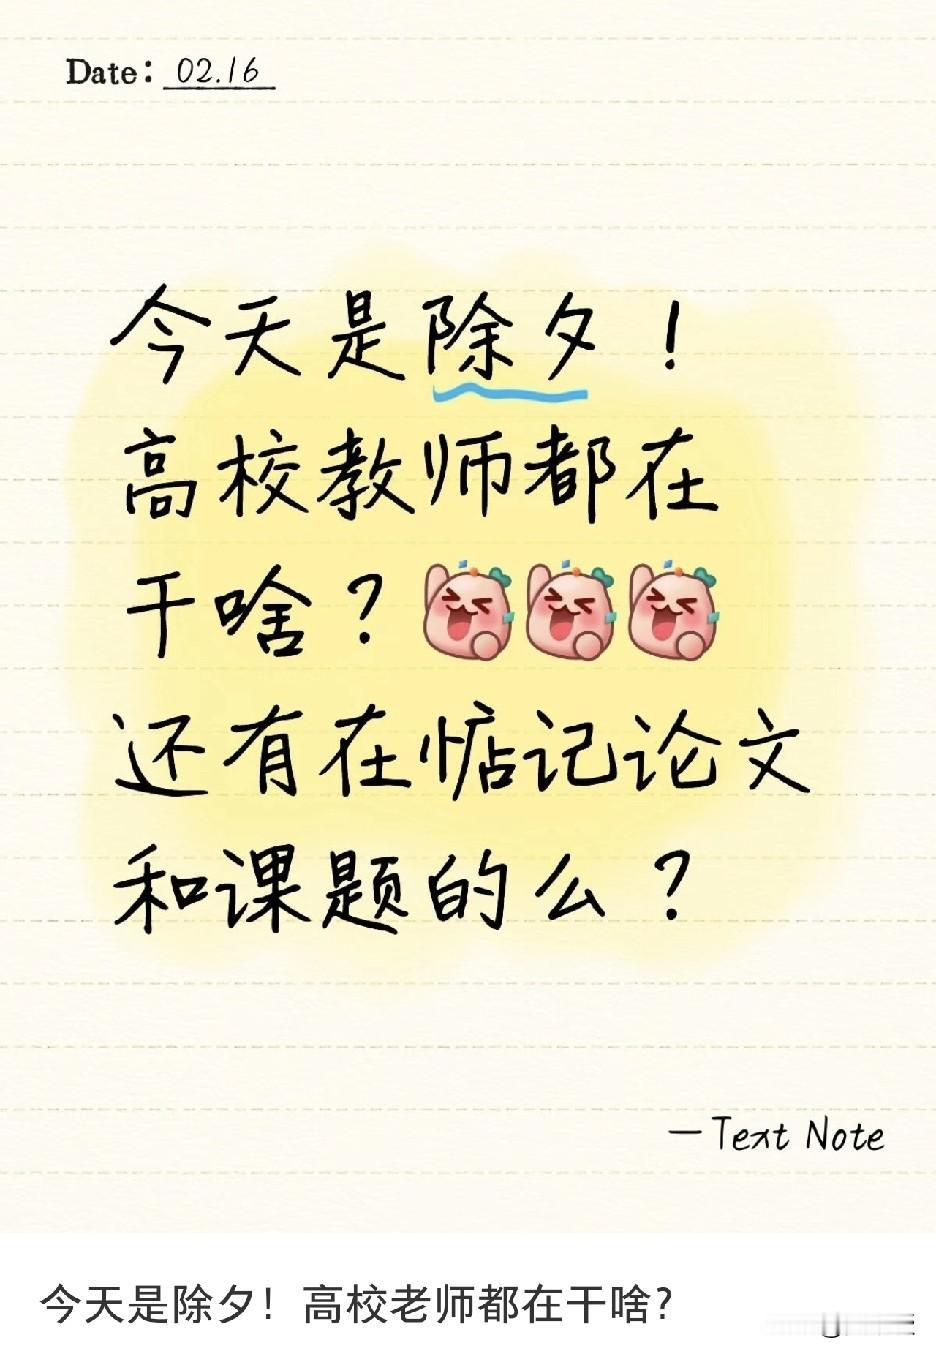 Date: 02.16
今天是除夕！
高校教师都在
干啥？
还有在惦记论文
和课题的么？
—Text Note
今天是除夕！高校老师都在干啥？